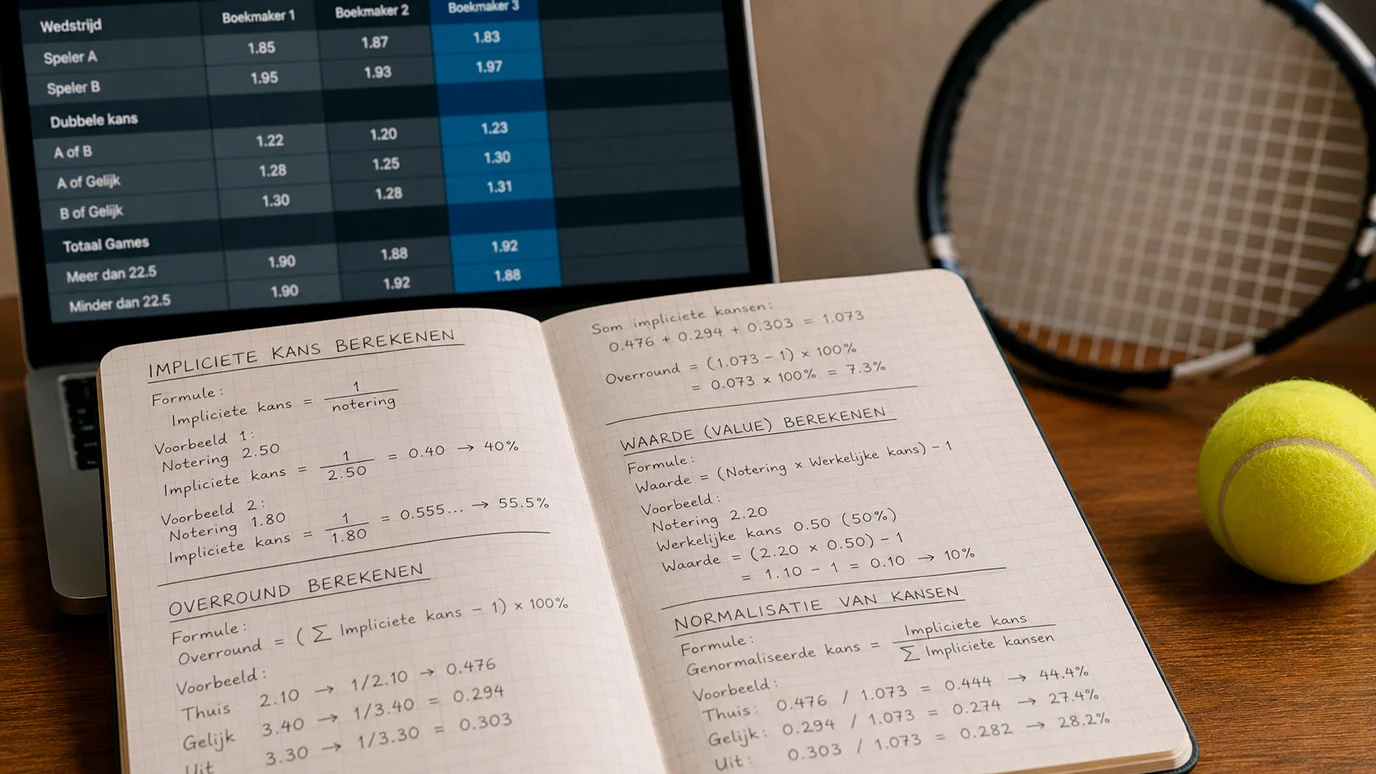 Wedstrijd Boekmaker 1 Boekmaker 2 Boekmaker 3
Speler A 1.85 1.87 1.83
Speler B 1.95 1.93 1.97
Dubbele kans
A of B 1.22 1.20 1.23
A of Gelijk 1.28 1.25 1.30
B of Gelijk 1.30 1.28 1.31
Totaal Games
Meer dan 22.5 1.90 1.88 1.92
Minder dan 22.5 1.90 1.92 1.88
IMPLICIETE KANS BEREKENEN
Formule:
Impliciete kans = 1 / notering
Voorbeeld 1:
Notering 2.50
Impliciete kans = 1 / 2.50 = 0.40 → 40%
Voorbeeld 2:
Notering 1.80
Impliciete kans = 1 / 1.80 = 0.555... → 55.5%
OVERROUND BEREKENEN
Formule:
Overround = (∑ Impliciete kans - 1) × 100%
Voorbeeld:
Thuis 2.10 → 1/2.10 → 0.476
Gelijk 3.40 → 1/3.40 = 0.294
Uit 3.30 → 1/3.30 = 0.303
Som impliciete kansen:
0.476 + 0.294 + 0.303 = 1.073
Overround = (1.073 - 1) × 100%
= 0.073 × 100% = 7.3%
WAARDE (VALUE) BEREKENEN
Formule:
Waarde = (Notering × Werkelijke kans) - 1
Voorbeeld:
Notering 2.20
Werkelijke kans 0.50 (50%)
Waarde = (2.20 × 0.50) - 1
= 1.10 - 1 = 0.10 → 10%
NORMALISATIE VAN KANSEN
Formule:
Genormaliseerde kans = Impliciete kans / ∑ Impliciete kansen
Voorbeeld:
Thuis: 0.476 / 1.073 = 0.444 → 44.4%
Gelijk: 0.294 / 1.073 = 0.274 → 27.4%
Uit: 0.303 / 1.073 = 0.282 → 28.2%